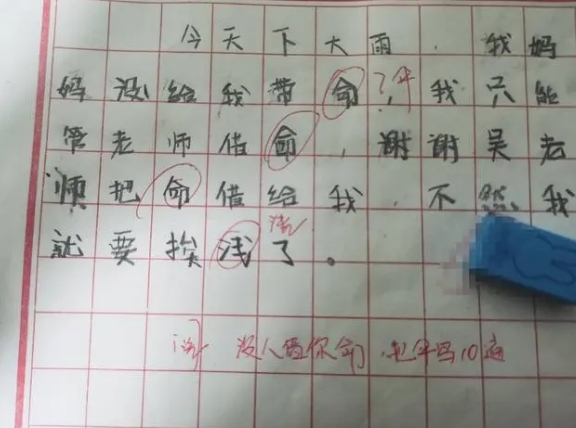 今天下大雨，我妈
妈没给我带命？伞，我只能
管老师借命，谢谢吴老
师把命借给我，不然我
就要挨浅了。
没人借你命，把伞写10遍